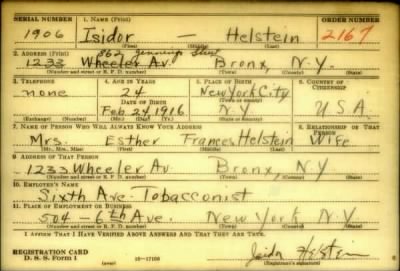 SERIAL NUMBER 1. NAME (Print) ORDER NUMBER
1906 Isidor — Helstein 2167
(First) (Middle) (Last)
2. ADDRESS (Print) 862 Jennings Street
1233 Wheeler Av. Bronx, N.Y.
(Number and street or R. F. D. number) (Town) (County) (State)
3. TELEPHONE 4. AGE IN YEARS 5. PLACE OF BIRTH 6. COUNTRY OF CITIZENSHIP
none 24 New York City
DATE OF BIRTH (Town or county)
Feb 24 1916 N.Y U.S.A.
(Exchange) (Number) (Mo.) (Day) (Yr.) (State or country)
7. NAME OF PERSON WHO WILL ALWAYS KNOW YOUR ADDRESS 8. RELATIONSHIP OF THAT PERSON
Mrs. Esther Frances Helstein Wife
(Mr., Mrs., Miss) (First) (Middle) (Last)
9. ADDRESS OF THAT PERSON
1233 Wheeler Av. Bronx, NY
(Number and street or R. F. D. number) (Town) (County) (State)
10. EMPLOYER'S NAME
Sixth Ave. Tobacconist
11. PLACE OF EMPLOYMENT OR BUSINESS
504 - 6th Ave. New York NY
(Number and street or R. F. D. number) (Town) (County) (State)
I AFFIRM THAT I HAVE VERIFIED ABOVE ANSWERS AND THAT THEY ARE TRUE.
REGISTRATION CARD Isidor Helstein
D. S. S. Form 1 (over) 16—17105 (Registrant's signature)